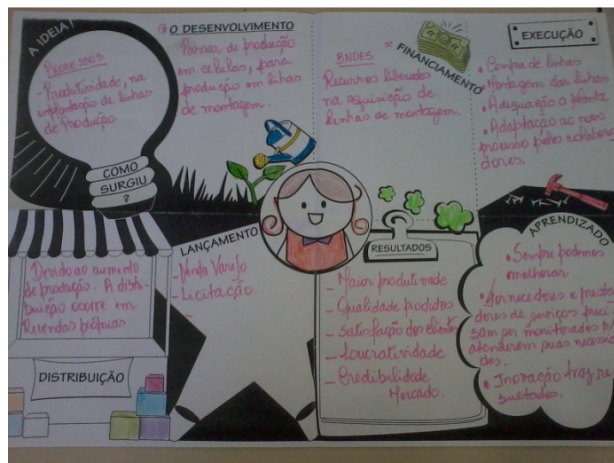 A IDEIA!
PROCESSOS
- Produtividade, na
implantação de linhas
de Produção
COMO
SURGIU
?
O DESENVOLVIMENTO
Passar de produção
em celulas, para
produção em linhas
de montagem.
FINANCIAMENTO
BNDES
Recursos liberados
na aquisição de
linhas de montagem.
EXECUÇÃO
• Compra de linhas
• Montagem das linhas
• Adequação a planta
• Adaptação ao novo
processo pelos colabora-
dores.
Devido ao aumento
de produção. A distri-
buição ocorre em
Revendas próprias
DISTRIBUIÇÃO
LANÇAMENTO
- Venda Varejo
- Licitação
-
RESULTADOS
- Maior produtividade
- Qualidade produtos
- Satisfação dos clientes
- Lucratividade
- Credibilidade
Mercado.
APRENDIZADO
• Sempre podemos
melhorar
• Fornecedores e presta
dores de serviços preci
sam ser monitorados p/
atenderem suas necessi
dades.
• Inovação traz re
sultados.